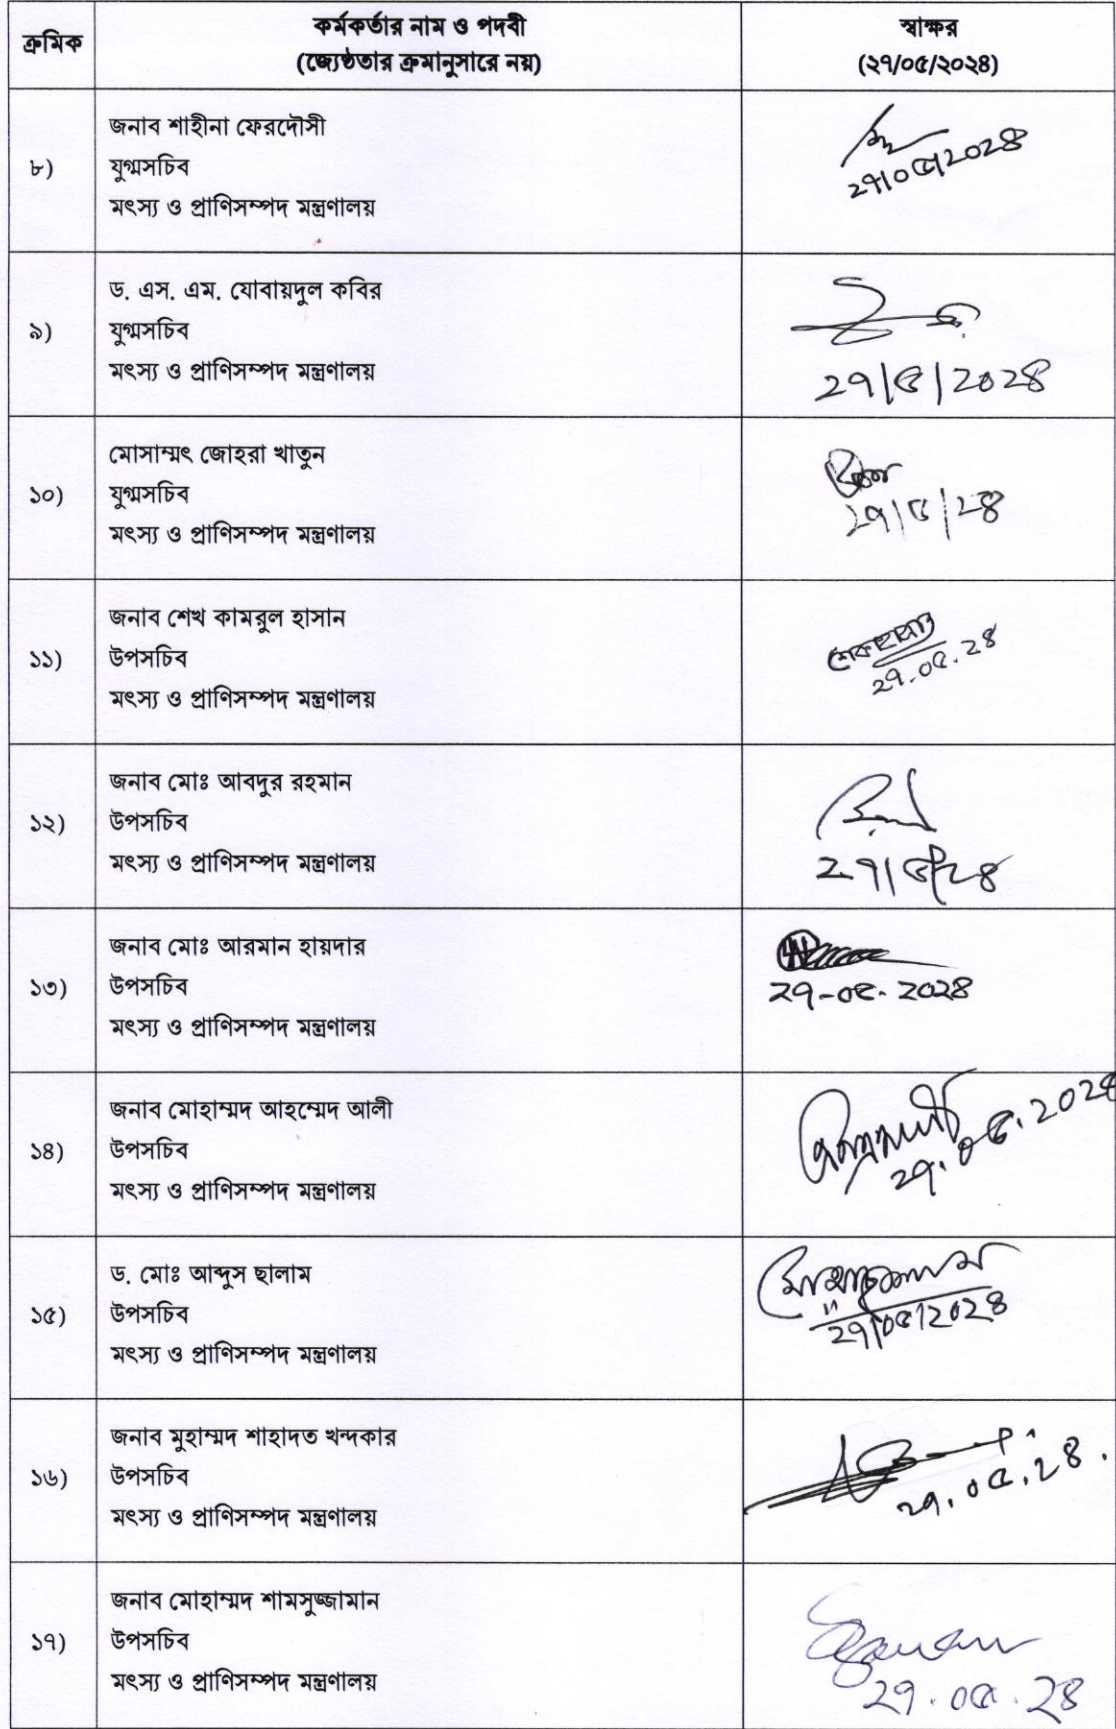 ক্রমিক
কর্মকর্তার নাম ও পদবী
(জ্যেষ্ঠতার ক্রমানুসারে নয়)
স্বাক্ষর
(২৭/০৫/২০২৪)
৮)
জনাব শাহীনা ফেরদৌসী
যুগ্মসচিব
মৎস্য ও প্রাণিসম্পদ মন্ত্রণালয়
২৭/০৫/২০২৪
৯)
ড. এস. এম. যোবায়দুল কবির
যুগ্মসচিব
মৎস্য ও প্রাণিসম্পদ মন্ত্রণালয়
২৭/৫/২০২৪
১০)
মোসাম্মৎ জোহরা খাতুন
যুগ্মসচিব
মৎস্য ও প্রাণিসম্পদ মন্ত্রণালয়
২৭/৫/২৪
১১)
জনাব শেখ কামরুল হাসান
উপসচিব
মৎস্য ও প্রাণিসম্পদ মন্ত্রণালয়
২৭.০৫.২৪
১২)
জনাব মোঃ আবদুর রহমান
উপসচিব
মৎস্য ও প্রাণিসম্পদ মন্ত্রণালয়
২৭/৫/২৪
১৩)
জনাব মোঃ আরমান হায়দার
উপসচিব
মৎস্য ও প্রাণিসম্পদ মন্ত্রণালয়
২৭-০৫-২০২৪
১৪)
জনাব মোহাম্মদ আহম্মেদ আলী
উপসচিব
মৎস্য ও প্রাণিসম্পদ মন্ত্রণালয়
২৭.০৫.২০২৪
১৫)
ড. মোঃ আব্দুস ছালাম
উপসচিব
মৎস্য ও প্রাণিসম্পদ মন্ত্রণালয়
২৭/০৫/২০২৪
১৬)
জনাব মুহাম্মদ শাহাদত খন্দকার
উপসচিব
মৎস্য ও প্রাণিসম্পদ মন্ত্রণালয়
২৭.০৫.২৪.
১৭)
জনাব মোহাম্মদ শামসুজ্জামান
উপসচিব
মৎস্য ও প্রাণিসম্পদ মন্ত্রণালয়
২৭.০৫.২৪